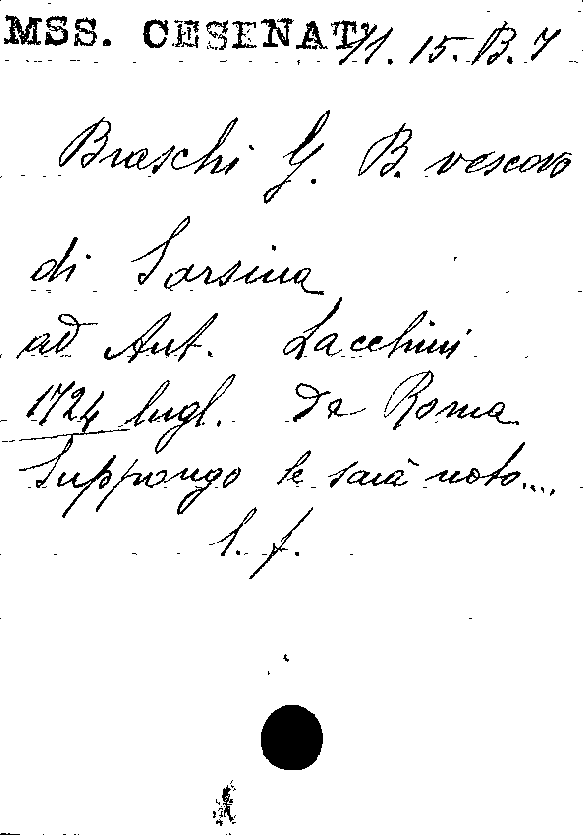 MSS. CESENATI 11. 15. B. 7
Braschi G. B. vescovo
di Sarsina
ad Ant. Lacchini
1724 lugl. da Roma
Suppongo le sarà noto....
l. f.